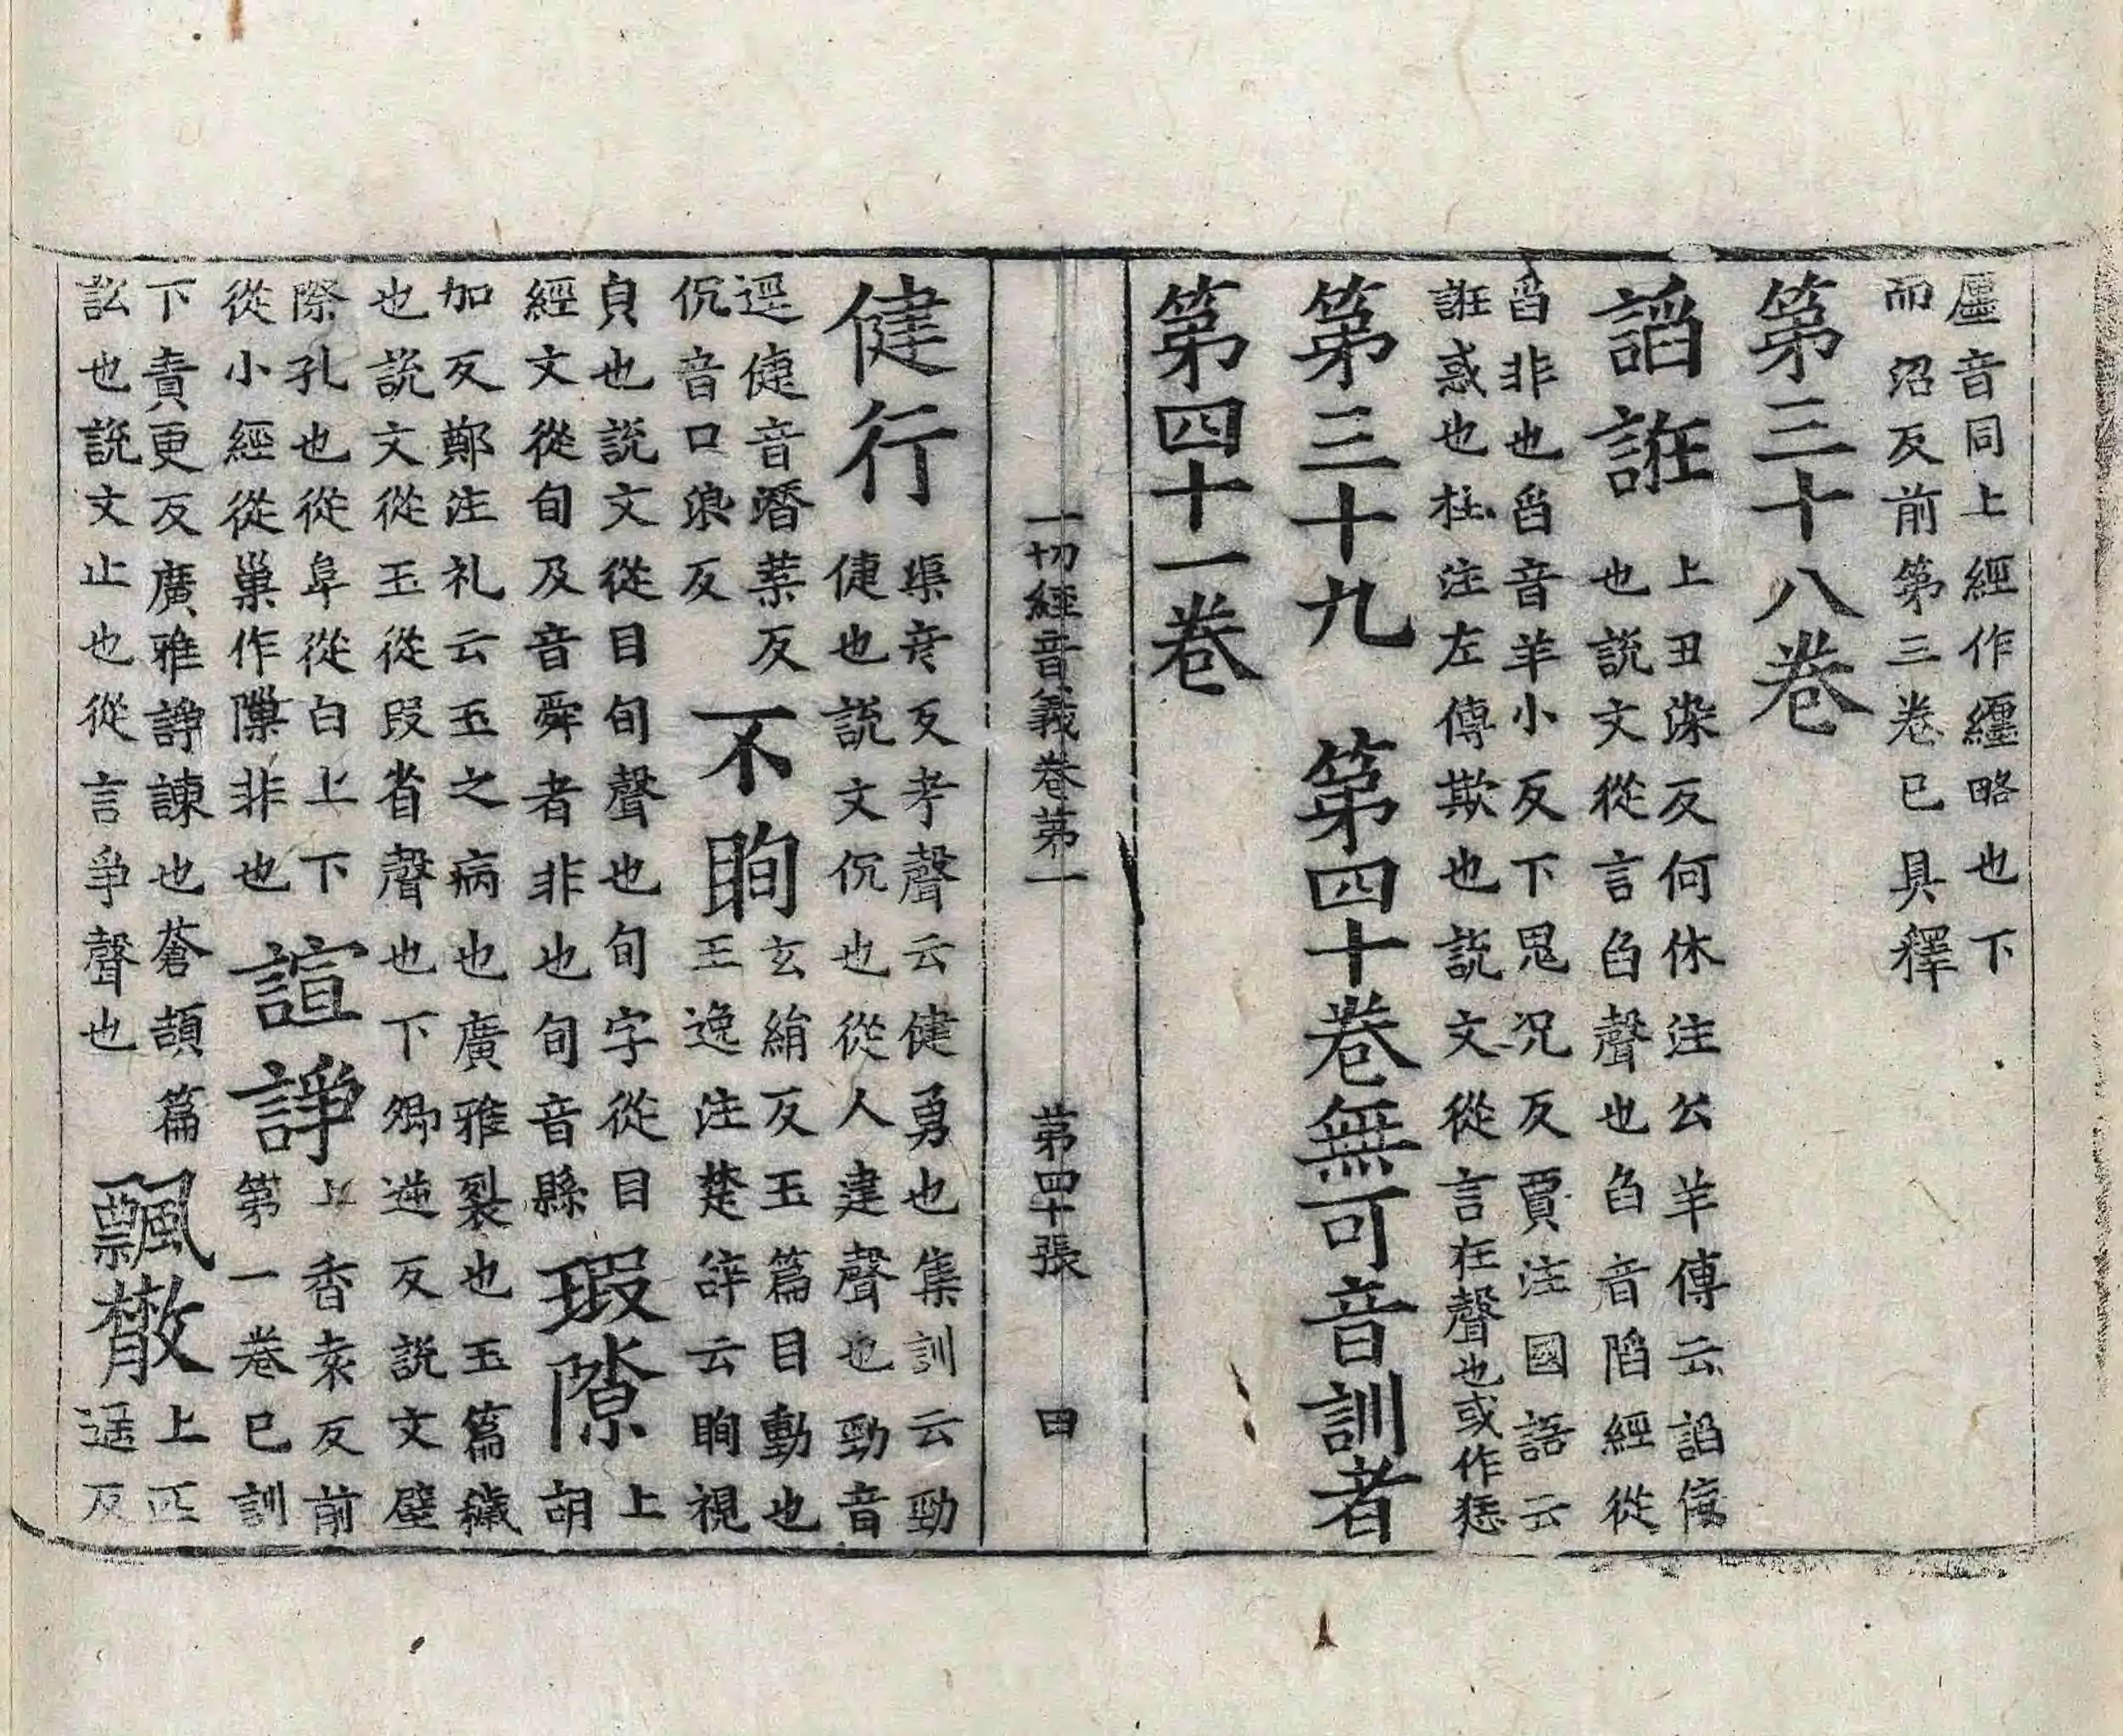 㕓音同上經作纒略也下
而沼反前第三卷已具釋
第三十八卷
諂誑
上丑染反何休注公羊傳云諂佞
也說文從言臽聲也臽音陷經從
舀非也舀音羊小反下俱況反賈注國語云
誑惑也杜注左傳欺也說文從言狂聲也或作𢛮
第三十九 第四十卷無可音訓者
第四十一卷
一切經音義卷第一 第四十張 曰
健行
渠彦反考聲云健勇也集訓云勁
倢也說文伉也從人建聲也勁音
逕倢音潛葉反
伉音口浪反
不眴
玄絹反玉篇目動也
王逸注楚辞云眴視
皃也說文從目旬聲也旬字從目
經文從旬及音舜者非也旬音縣
瑕隙
上胡
加反鄭注礼云玉之病也廣雅裂也玉篇穢
也說文從玉從叚省聲也下卿逆反說文壁
際孔也從阜從白上下
從小經從巢作隟非也
諠諍
上香袁反前
第一卷已訓
下責更反廣雅諍諫也蒼頡篇
訟也說文止也從言爭聲也
飄散
上匹
遥反